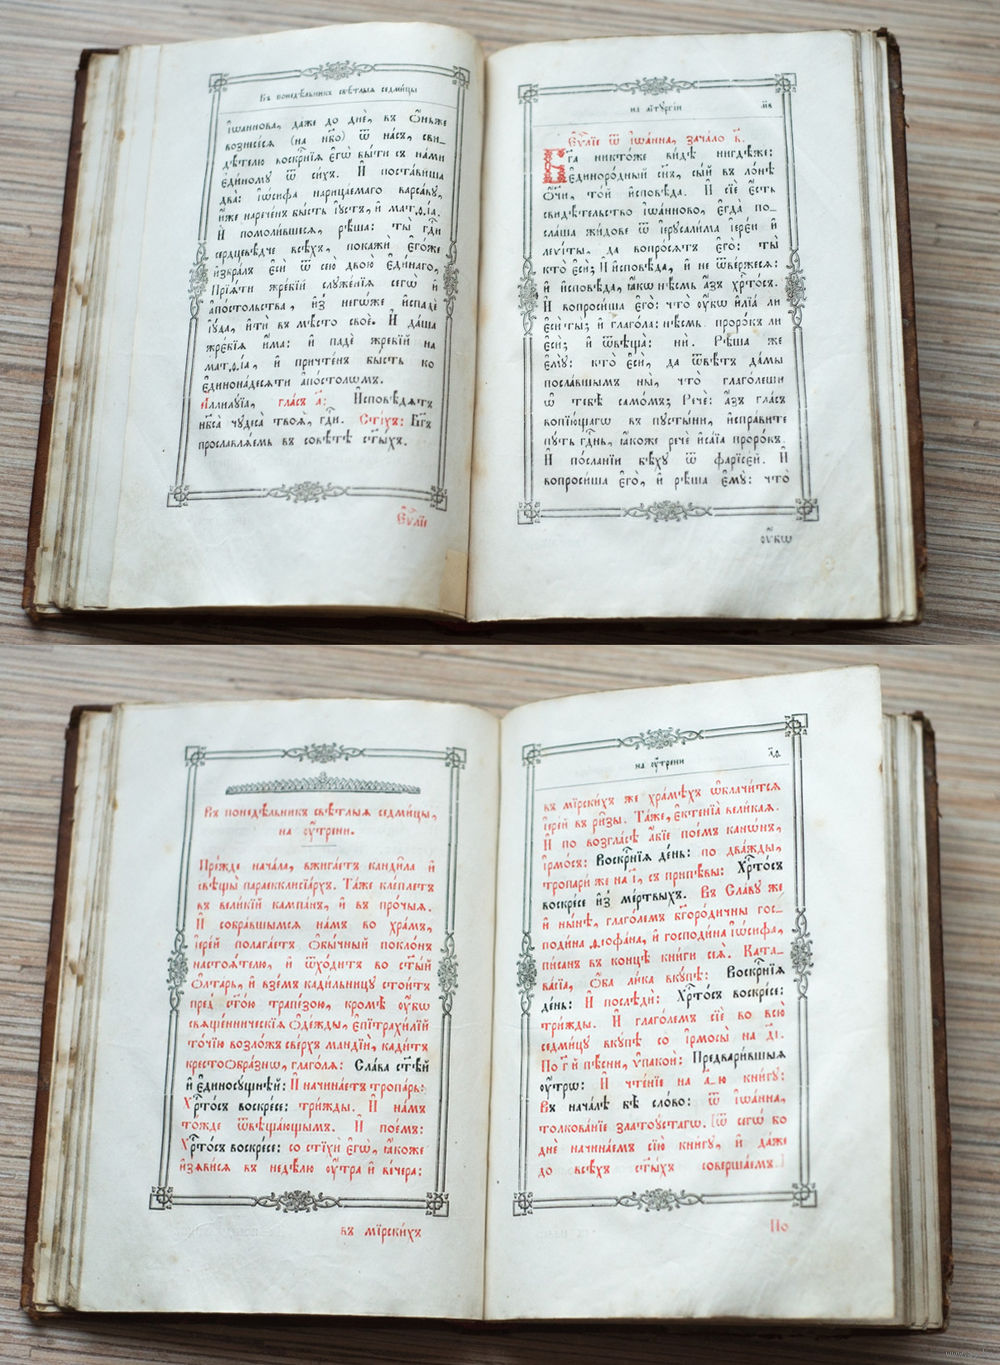 Въ понедѣ́льникъ свѣ́тлыѧ седми́цы
і҆ѡа́ннова, да́же до днѐ, въ ѻ҆́ньже
вознесе́сѧ (на нб҃о) ѿ на́съ, сви_
дѣ́телю воскрⷭ҇нїѧ є҆гѡ̀ бы́ти съ на́ми
є҆ди́ному ѿ си́хъ. И҆ поста́виша
два̀: і҆ѡ́сифа нарица́емаго варса́ву,
и҆́же нарече́нъ бы́сть і҆ꙋ́стъ, и҆ матѳі́а.
И҆ помоли́вшесѧ, рѣ́ша: ты̀ гдⷭ҇и
сердцевѣ́дче всѣ́хъ, покажѝ є҆го́же
и҆збра́лъ є҆сѝ ѿ сею̀ двою̀ є҆ди́наго,
Прїѧ́ти жре́бїй слꙋже́нїѧ сегѡ̀ и҆
а҆по́стольства, и҆з̾ негѡ́же и҆спадѐ
і҆ꙋ́да, и҆тѝ въ мѣ́сто своѐ. И҆ да́ша
жре́бїѧ и҆̀ма: и҆ падѐ жре́бїй на
матѳі́а, и҆ причте́нъ бы́сть ко
є҆динона́десѧти а҆по́столѡмъ.
А҆ллилꙋ́їа, гла́съ а҃: И҆сповѣ́дѧтъ
нб҃са̀ чꙋдеса̀ твоѧ̀, гдⷭ҇и. Сті́хъ: Бг҃ъ
прославлѧ́емь въ совѣ́тѣ ст҃ы́хъ.
Є҆ѵⷢ҇лїе
на лїтꙋргі́и
Є҆ѵⷢ҇лїе ѿ і҆ѡа́нна, зача́ло в҃.
Бг҃а никто́же ви́дѣ нигдѣ́же:
є҆диноро́дный сн҃ъ, сы́й въ ло́нѣ
ѻ҆́ч҃и, то́й и҆сповѣ́да. И҆ сїѐ є҆́сть
свидѣ́тельство і҆ѡа́нново, є҆гда̀ по_
сла́ша жи́дове ѿ і҆ерꙋсали́ма і҆ере́и и҆
леѵі́ты, да вопро́сѧтъ є҆го̀: ты̀
кто̀ є҆сѝ; И҆ и҆сповѣ́да, и҆ не ѿве́ржесѧ:
и҆ и҆сповѣ́да, ꙗ҆́кѡ нѣ́смь а҆́зъ хрⷭ҇то́съ.
И҆ вопроси́ша є҆го̀: что̀ ᲂу҆́бѡ и҆лїа̀ ли
є҆сѝ ты̀; и҆ глаго́ла: нѣ́смь. проро́къ ли
є҆сѝ; и҆ ѿвѣща̀: нѝ. Рѣ́ша же
є҆мꙋ̀: кто̀ є҆сѝ, да ѿвѣ́тъ да́мы
посла́вшымъ ны̀, что̀ глаго́леши
ѡ҆ тебѣ̀ само́мъ; Речѐ: а҆́зъ гла́съ
вопїю́щагѡ въ пꙋсты́ни, и҆спра́вите
пꙋ́ть гдⷭ҇нь, ꙗ҆́коже речѐ и҆са́їа проро́къ.
И҆ по́слани бѣ́хꙋ ѿ фарїсє́й. И҆
вопроси́ша є҆го̀, и҆ рѣ́ша є҆мꙋ̀: что̀
ᲂу҆́бѡ
Въ понедѣ́льникъ свѣ́тлыѧ седми́цы,
на ᲂу҆́трени.
Пре́жде нача́ла, вжига́етъ канди̑ла и҆
свѣ́щы̀ параекклисїа́рхъ. Та́же кле́плетъ
въ вели́кїй кампа́нъ, и҆ въ про́чыѧ.
И҆ собра́вшымсѧ на́мъ во хра́мъ,
і҆ере́й полага́етъ ѻ҆бы́чный покло́нъ
настоѧ́телю, и҆ ѿхо́дитъ во ст҃ы́й
ѻ҆лта́рь, и҆ взе́мъ кади́льницꙋ стои́тъ
пред̾ ст҃о́ю трапе́зою, кромѣ̀ ᲂу҆́бѡ
свѧще́нническїѧ ѻ҆де́жды, є҆пїтрахи́лїй
то́чїю возло́жъ све́рхъ манді́и, кади́тъ
крестоѻбра́знѡ, глаго́лѧ: Сла́ва ст҃ѣ́й
и҆ є҆диносꙋ́щнѣй: И҆ начина́етъ тропа́рь:
Хрⷭ҇то́съ воскре́се: три́жды. И҆ на́мъ
то́жде ѿвѣща́ющымъ. И҆ пое́мъ:
Хрⷭ҇то́съ воскре́се: со стїхѝ є҆гѡ̀, ꙗ҆́коже
и҆з̾ѧви́сѧ въ недѣ́лю ᲂу҆́тра и҆ ве́чера:
въ мїрски́хъ
на ᲂу҆́трени
въ мїрски́хъ же хра́мѣхъ ѡ҆блачи́тсѧ
і҆ере́й въ ри̑зы. Та́же, є҆ктенїа̀ вели́каѧ.
И҆ по во́згласѣ а҆́бїе пое́мъ кано́нъ,
і҆рмо́съ: Воскрⷭ҇нїѧ де́нь: по два́жды,
тропари́ же на і҃, съ припѣ́вы: Хрⷭ҇то́съ
воскре́се и҆з̾ ме́ртвыхъ. Въ Сла́вꙋ же
и҆ ны́нѣ, глаго́лемъ бг҃оро́дичны гос_
поди́на ѳеофа́на, и҆ господи́на і҆ѡ́сифа,
пи́санъ въ концѣ̀ кни́ги сеѧ̀. Ката_
ва́сїа, ѻ҆́ба ли́ка вкꙋ́пѣ: Воскрⷭ҇нїѧ
де́нь: И҆ послѣдѝ: Хрⷭ҇то́съ воскре́се:
три́жды. И҆ глаго́лемъ сїѐ во всю̀
седми́цꙋ вкꙋ́пѣ со і҆рмосы̀ на д҃і.
По г҃ й пѣ́сни, ѵ҆пако́и: Предвари́вшыѧ
ᲂу҆́трѡ: И҆ чте́нїе на а҃_ю кни́гꙋ:
Въ нача́лѣ бѣ̀ сло́во: ѿ і҆ѡа́нна,
толкова́нїе златоꙋ́стагѡ. [ѿ сегѡ́ бо
днѐ начина́емъ сїю̀ кни́гꙋ, и҆ да́же
до всѣ́хъ ст҃ы́хъ соверша́емъ.]
По